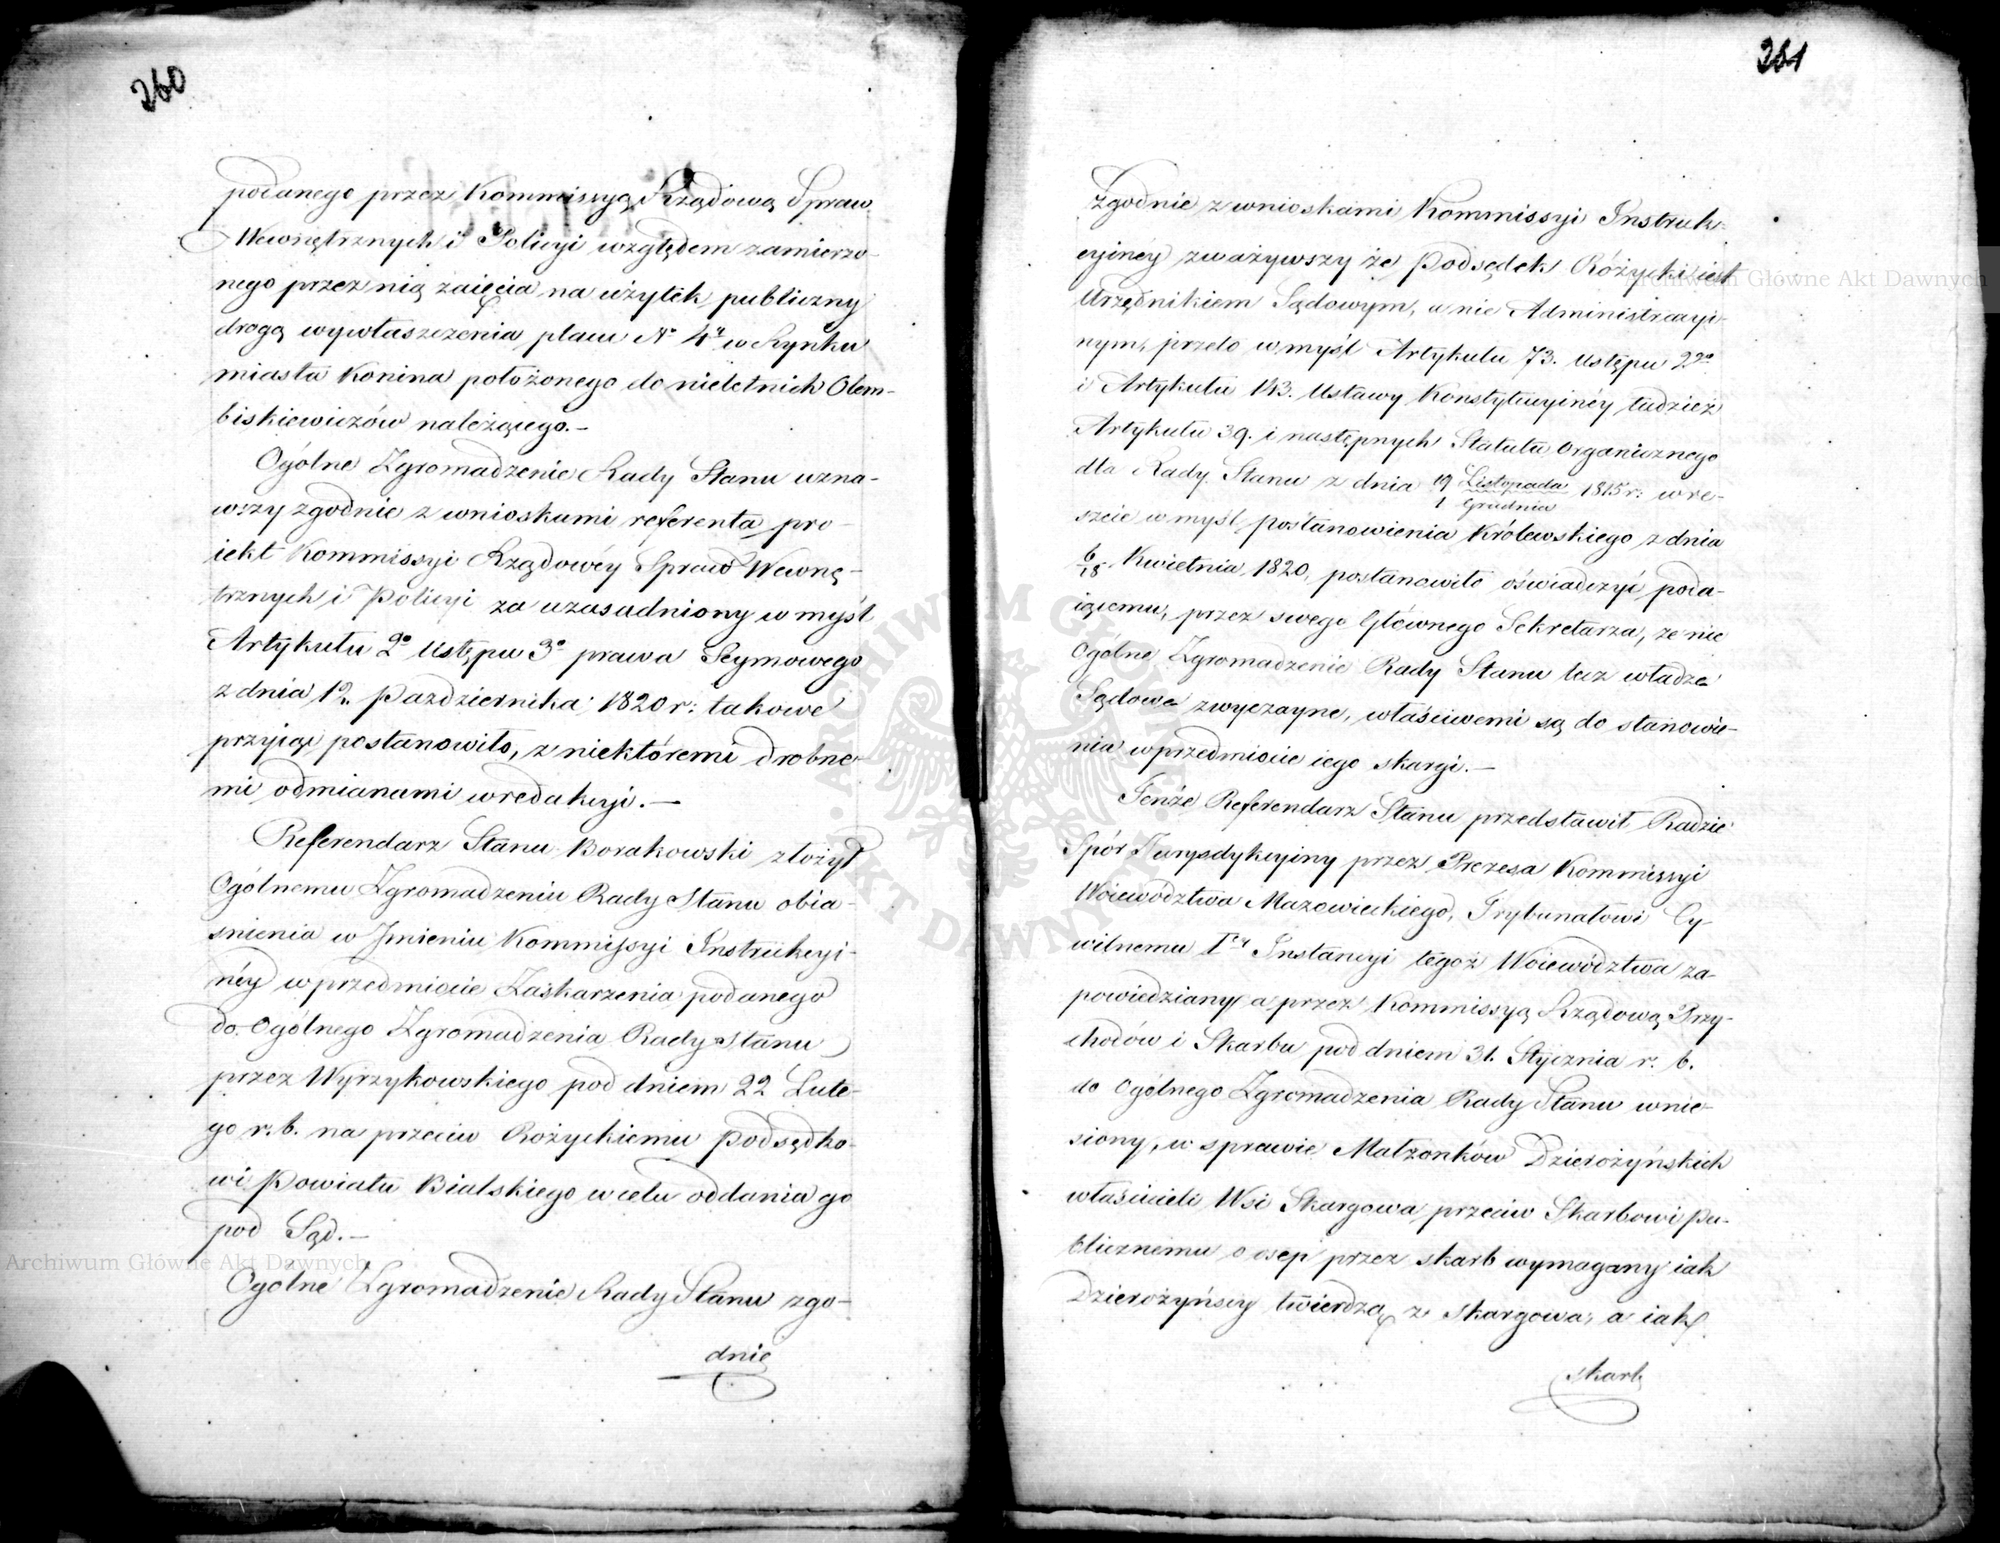 260
podanego przez Kommissyą Rządową Spraw
Wewnętrznych i Policyi względem zamierzo-
nego przez nią zaięcia na użytek publiczny
drogą wywłaszczenia placu No 4r w Rynku
miasta Konina położonego do nieletnich Olem-
biskiewiczów należącego.-
Ogólne Zgromadzenie Rady Stanu uzna-
wszy zgodnie z wnioskami referenta pro-
iekt Kommissyi Rządowéy Spraw Wewnę-
trznych i Policyi za uzasadniony w myśl
Artykułu 2o Ustępu 3o prawa Seymowego
z dnia 12. Października 1820 r: takowe
przyiąć postanowiło, z niektóremi drobne-
mi odmianami w redakcyi.—
Referendarz Stanu Borakowski złożył
Ogólnemu Zgromadzeniu Rady Stanu obia-
snienia w Jmieniu Kommissyi Instrukcyi-
néy w przedmiocie Zaskarzenia podanego
do Ogólnego Zgromadzenia Rady Stanu
przez Wyrzykowskiego pod dniem 22 Lute-
go r. b. na przeciw Rożyckiemu Podsędko-
wi Powiatu Bialskiego w celu oddania go
pod Sąd.—
Ogolne Zgromadzenie Rady Stanu zgo-
dnie
261
Zgodnie z wnioskami Kommissyi Instruk-
cyinéy zważywszy że Podsędek Różycki iest
Urzędnikiem Sądowym, a nie Administracyi-
nym, przeto w myśl Artykułu 73. Ustępu 22o
i Artykułu 143. Ustawy Konstytucyinéy tudzież
Artykułu 39. i następnych Statutu Organicznego
dla Rady Stanu z dnia 19 Listopada / 1 Grudnia 1815 r: wre-
szcie w myśl postanowienia Królewskiego z dnia
6/18 Kwietnia 1820, postanowiło oświadczyć poda-
iącemu, przez swego Głównego Sekretarza, ze nie
Ogólne Zgromadzenie Rady Stanu lecz władze
Sądowe zwyczayne, właściwemi są do stanowie-
nia w przedmiocie iego skargi.—
Tenże Referendarz Stanu przedstawił Radzie
Spór Jurysdykcyiny przez Prezesa Kommissyi
Woiewództwa Mazowieckiego, Trybunałowi Cy-
wilnemu Iéy Instancyi tegoż Woiewództwa za-
powiedziany a przez Kommissyą Rządową Przy-
chodów i Skarbu pod dniem 31. Stycznia r. b.
do Ogólnego Zgromadzenia Rady Stanu wnie-
siony, w sprawie Małzonków Dzierożyńskich
właścicieli Wsi Skargowa przeciw Skarbowi Pu-
blicznemu o osep przez skarb wymagany iak
Dzierożyńscy twierdzą z Skargowa, a iak
skarb
Archiwum Główne Akt Dawnych
Archiwum Główne Akt Dawnych
ARCHIWUM GŁÓWNE AKT DAWNYCH